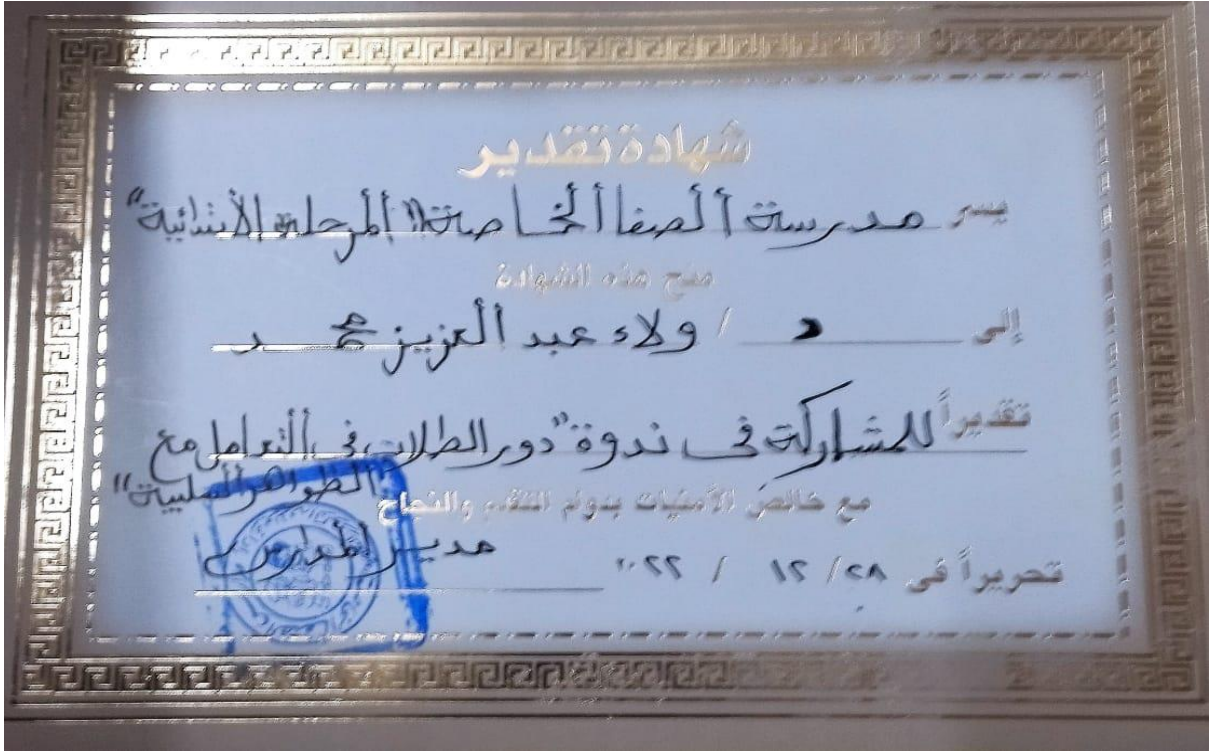 شهادة تقدير
يسر مدرسة ألصفا ألخاصة "ألمرحلة الأبتدائية"
منح هذه الشهادة
إلى د / ولاء عبد ألعزيز محمد
تقديراً للمشاركة فى ندوة "دور الطلاب فى ألتعامل مع
ألظواهر ألسلبية"
مع خالص الأمنيات بدوام التقدم والنجاح
تحريراً فى ٢٨/ ١٢ / ٢٠٢٢ مدير ألمدارس